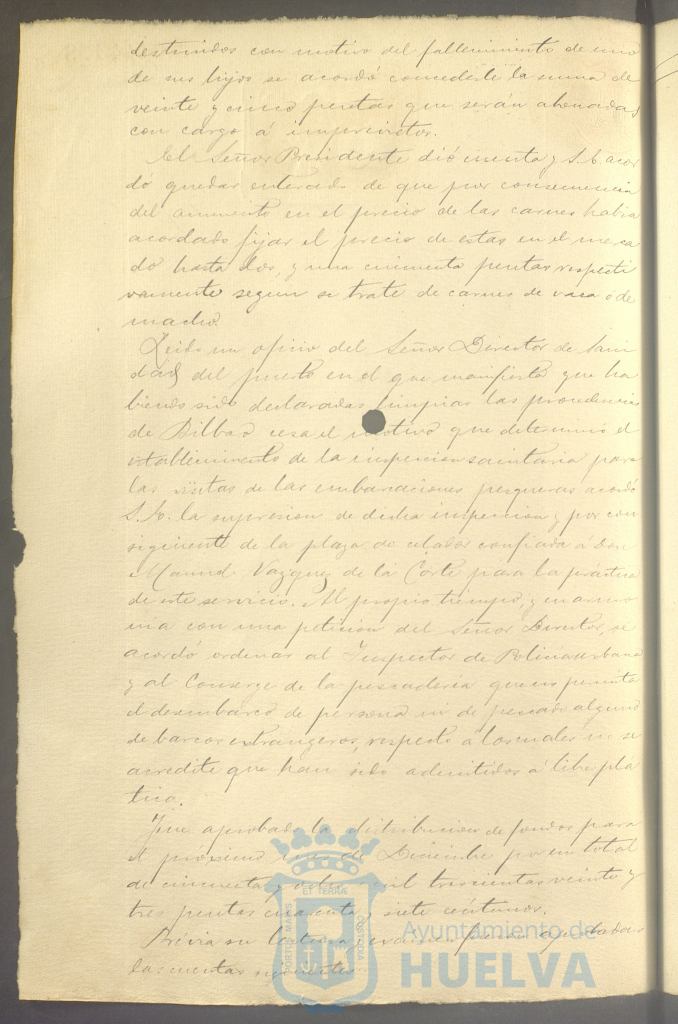 destruidos con motivo del fallecimiento de uno
de sus hijos se acordó concederle la suma de
veinte y cinco pesetas que serán abonadas
con cargo á imprevistos.
El Señor Presidente dió cuenta y S. E. acor
dó quedar enterado de que por consecuencia
del aumento en el precio de las carnes habia
acordado fijar el precio de estas en el merca
do hasta dos, y una cincuenta pesetas respecti
vamente segun se trate de carnes de vaca o de
macho.
Leido un oficio del Señor Director de Sani
dad del puerto en el que manifiesta que ha
biendo sido declaradas limpias las procedencias
de Bilbao cesa el motivo que determinó el
establecimiento de la inspeccion sanitaria para
las visitas de las embarcaciones pesqueras acordó
S. E. la supresion de dicha inspeccion y por con
siguiente de la plaza de celador confiada á Don
Manuel Vazquez de la Corte para la práctica
de este servicio. Al propio tiempo, y en armo
nia con una peticion del Señor Director, se
acordó ordenar al Inspector de Policia urbana
y al Conserge de la pescaderia que no permita
el desembarco de persona ni de pescado alguno
de barcos extrangeros, respecto á los cuales no se
acredite que han sido admitidos á libre plá
tica.
Fue aprobada la distribucion de fondos para
el próximo mes de Diciembre por un total
de cincuenta y ocho mil trescientas veinte y
tres pesetas cuarenta y siete céntimos.
Prévia su lectura y exámen fueron aprobadas
las cuentas siguientes:
Ayuntamiento de
HUELVA